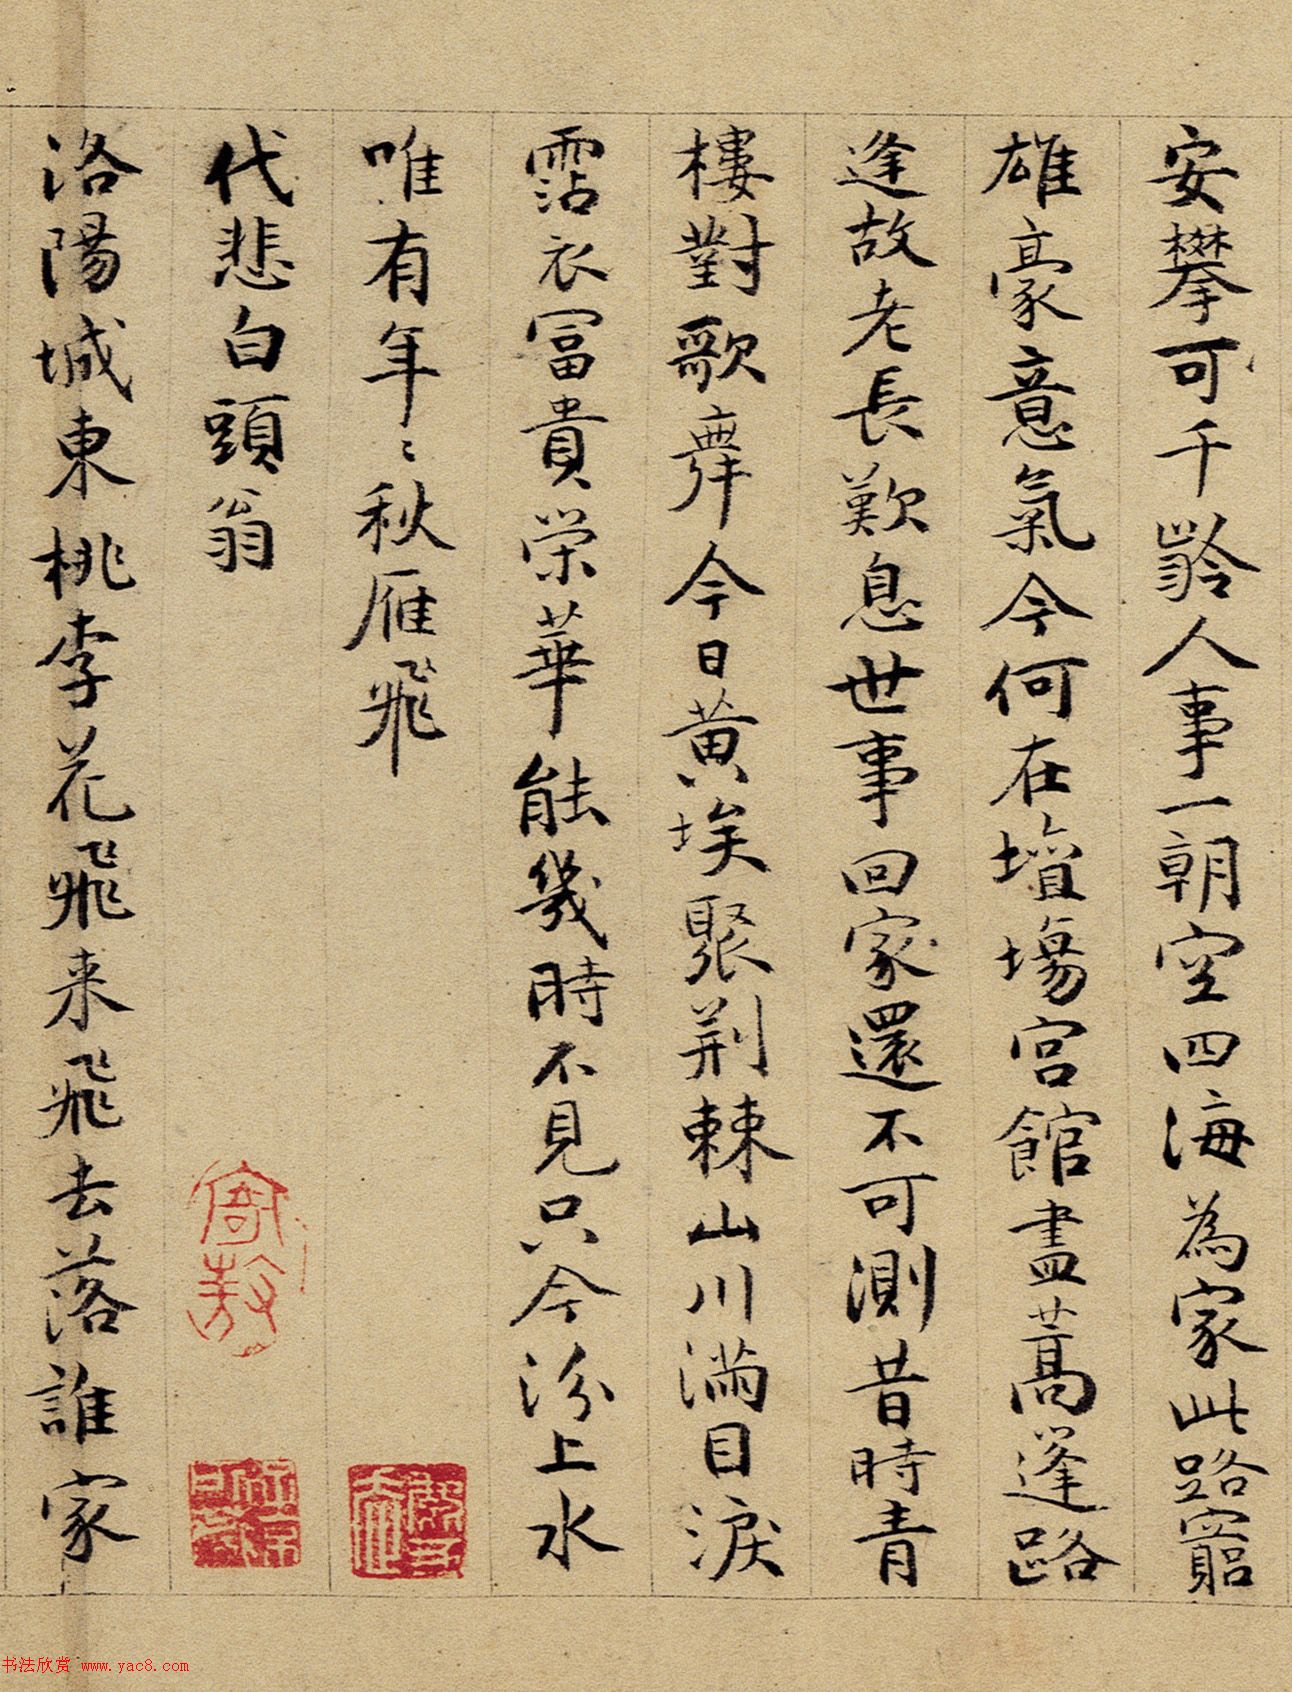 安攀可千齡人事一朝空四海為家此路窮
雄豪意氣今何在壇場宮館盡蒿蓬路
逢故老長歎息世事回家還不可測昔時青
樓對歌舞今日黃埃聚荊棘山川滿目淚
霑衣冨貴榮華能幾時不見只今汾上水
唯有年〻秋雁飛
代悲白頭翁
洛陽城東桃李花飛来飛去落誰家
书法欣赏 www.yac8.com